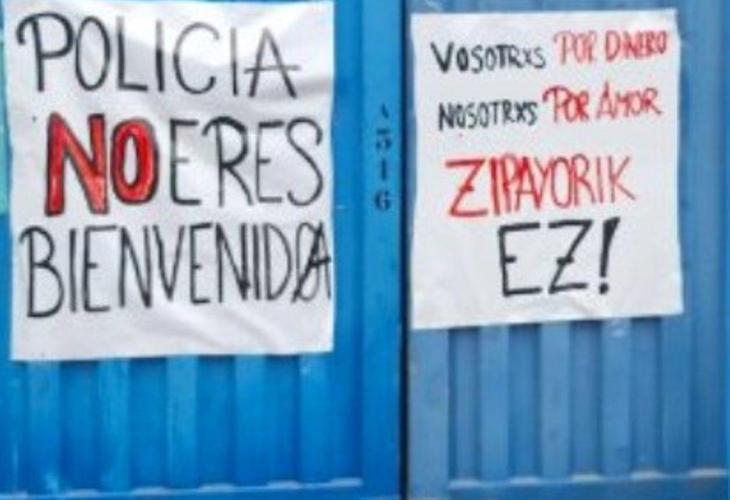 POLICIA
NO ERES
BIENVENIDA
A
516
VOSOTRXS POR DINERO
NOSOTRXS POR AMOR
ZIPAYORIK
EZ!